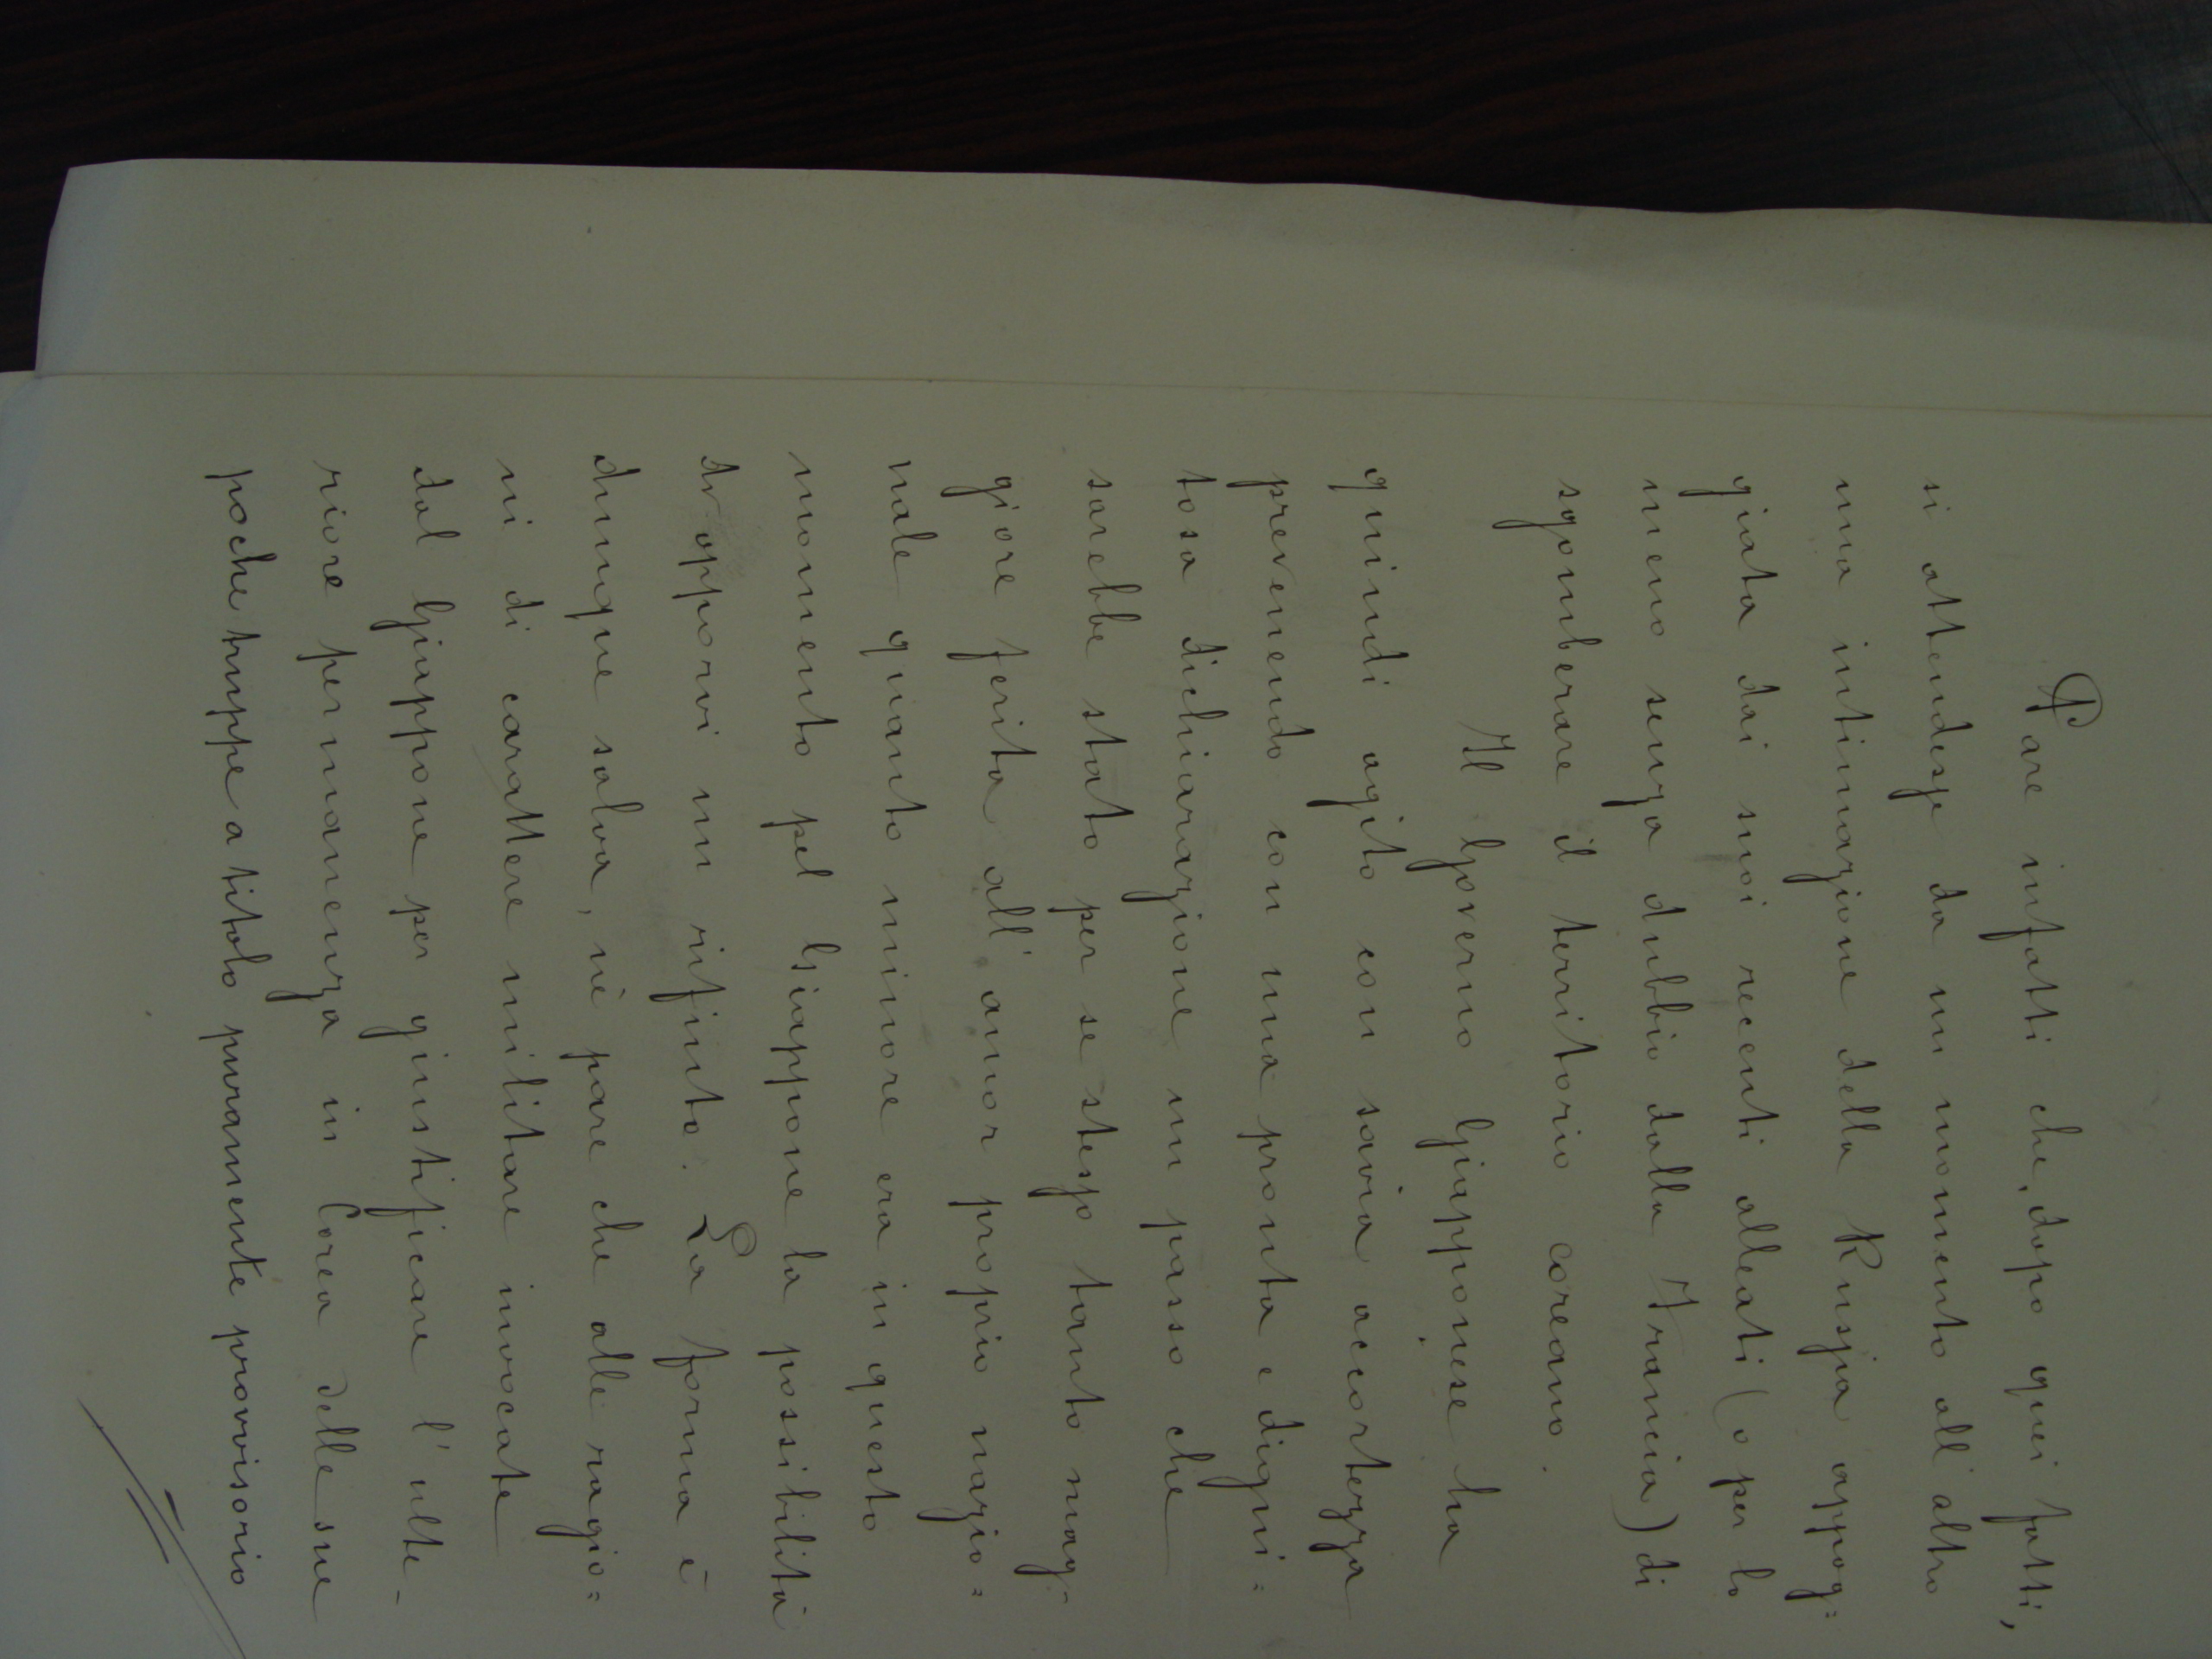 Pare infatti che, dopo quei fatti,
si attendesse da un momento all'altro
una intimazione della Russia appog=
giata dai suoi recenti alleati (o per lo
meno senza dubbio dalla Francia) di
sgomberare il territorio coreano.
Il Governo Giapponese ha
quindi agito con savia accortezza
prevenendo con una pronta e digni=
tosa dichiarazione un passo che
sarebbe stato per se stesso tanto mag-
giore ferita all'amor proprio nazio=
nale quanto minore era in questo
momento pel Giappone la possibilità
di opporvi un rifiuto. La forma è
dunque salva, nè pare che alle ragio=
ni di carattere militare invocate
dal Giappone per giustificare l'ulte-
riore permanenza in Corea delle sue
poche truppe a titolo puramente provvisorio